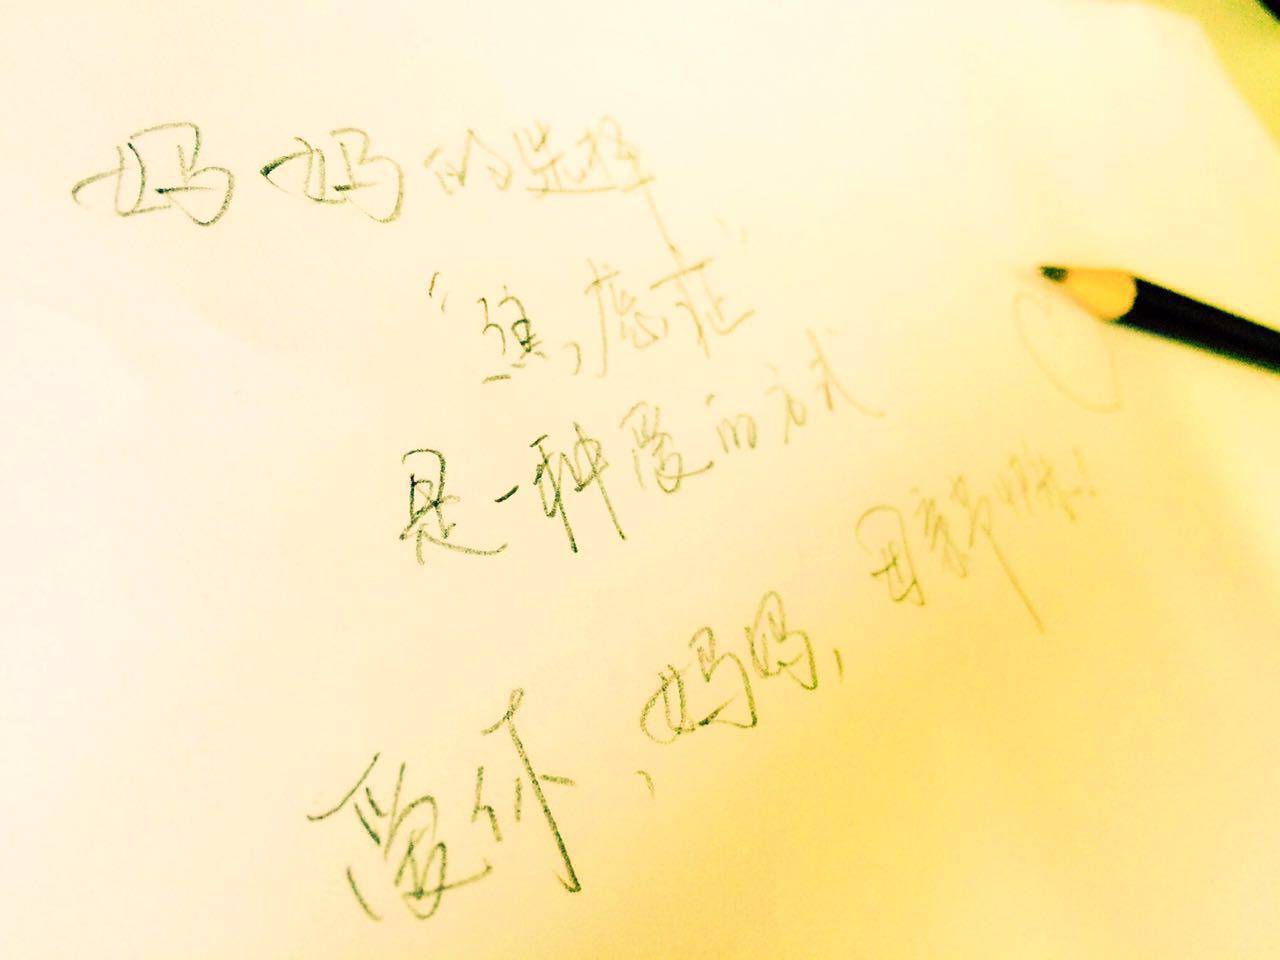 妈妈的选择
“焦虑症”
是一种爱的方式
爱你、妈妈,母亲节快乐!